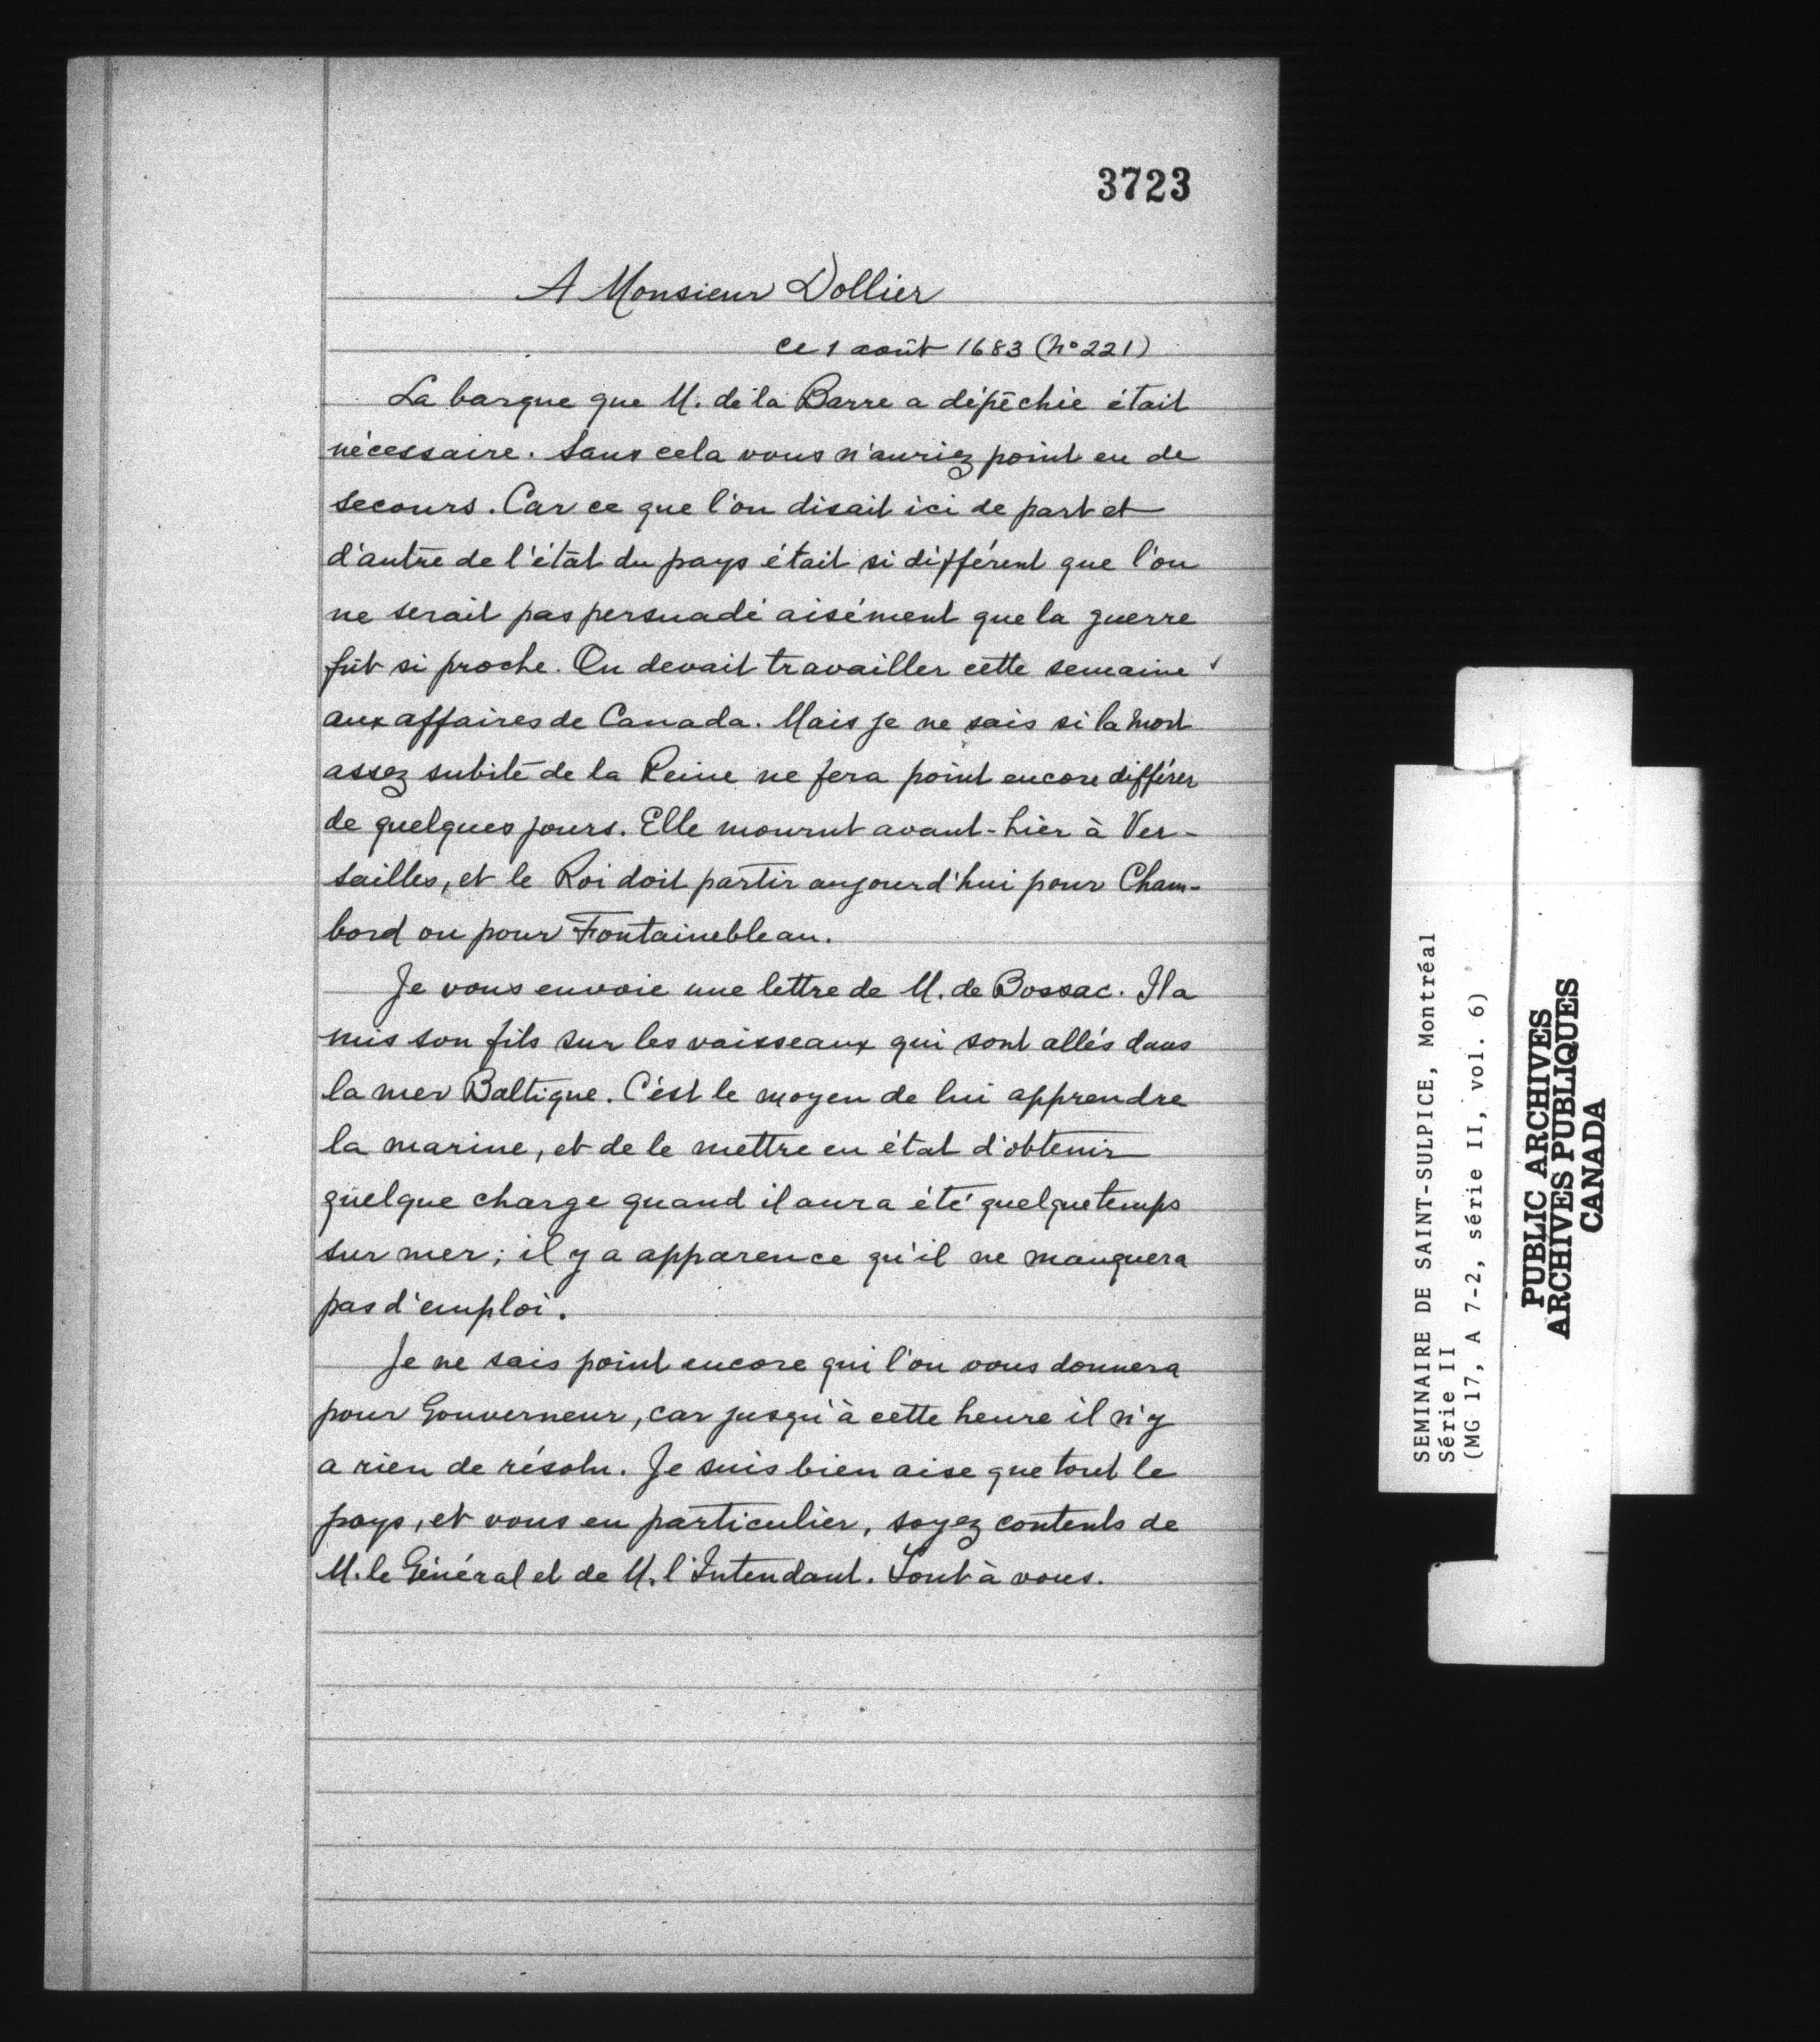 3723
A Monsieur Dollier
ce 1 août 1683 (No 221)
La barque que M. de la Barre a dépêchée était
nécessaire. Sans cela vous n'auriez point eu de
secours. Car ce que l'on disait ici de part et
d'autre de l'état du pays était si différent que l'on
ne serait pas persuadé aisément que la guerre
fût si proche. On devait travailler cette semaine
aux affaires de Canada. Mais je ne sais si la mort
assez subite de la Reine ne fera point encore différer
de quelques jours. Elle mourut avant-hier à Ver-
sailles, et le Roi doit partir aujourd'hui pour Cham-
bord ou pour Fontainebleau.
Je vous envoie une lettre de M. de Bossac. Il a
mis son fils sur les vaisseaux qui sont allés dans
la mer Baltique. C'est le moyen de lui apprendre
la marine, et de le mettre en état d'obtenir
quelque charge quand il aura été quelque temps
sur mer; il y a apparence qu'il ne manquera
pas d'emploi.
Je ne sais point encore qui l'on vous donnera
pour Gouverneur, car jusqu'à cette heure il n'y
a rien de résolu. Je suis bien aise que tout le
pays, et vous en particulier, soyez contents de
M. le Général et de M. l'Intendant. Tout à vous.
SEMINAIRE DE SAINT-SULPICE, Montréal
Série II
(MG 17, A 7-2, série II, vol. 6)
PUBLIC ARCHIVES
ARCHIVES PUBLIQUES
CANADA